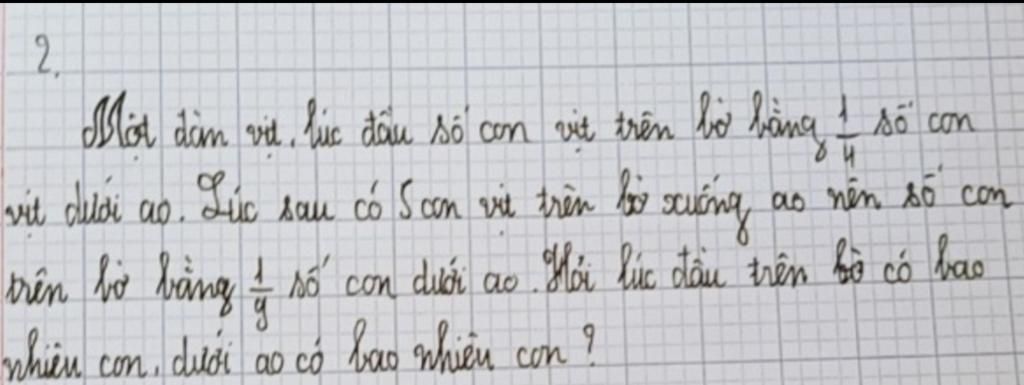 2.
Một đàn vịt, lúc đầu số con vịt trên bờ bằng 1/4 số con
vịt dưới ao. Lúc sau có 5 con vịt trên bờ xuống ao nên số con
trên bờ bằng 1/9 số con dưới ao. Hỏi lúc đầu trên bờ có bao
nhiêu con, dưới ao có bao nhiêu con?